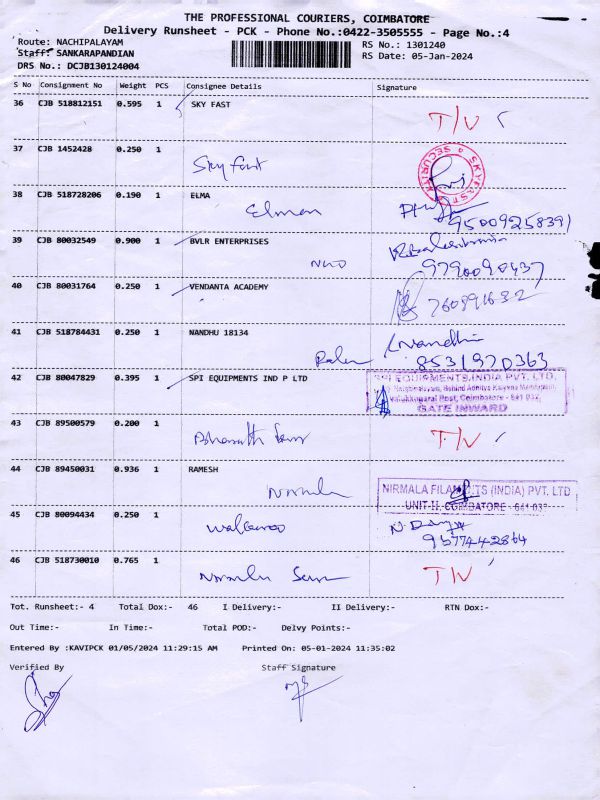 THE PROFESSIONAL COURIERS, COIMBATORE
Delivery Runsheet - PCK - Phone No.:0422-3505555 - Page No.:4
Route: NACHIPALAYAM
Staff: SANKARAPANDIAN
DRS No.: DCJB130124004
RS No.: 1301240
RS Date: 05-Jan-2024
S No Consignment No Weight PCS Consignee Details Signature
36 CJB 518812151 0.595 1 SKY FAST
T/V
37 CJB 1452428 0.250 1
Sky fast
SKYFAST SECURITY
38 CJB 518728206 0.190 1 ELMA
Elman
9500925839)
39 CJB 80032549 0.900 1 BVLR ENTERPRISES
9790090437
40 CJB 80031764 0.250 1 VENDANTA ACADEMY
41 CJB 518784431 0.250 1 NANDHU 18134
Nandhu
8531970363
42 CJB 80047829 0.395 1 SPI EQUIPMENTS IND P LTD
SPI EQUIPMENTS INDIA PVT. LTD.
Coimbatore - 641 032.
GATE INWARD
43 CJB 89500579 0.200 1
T/V
44 CJB 89450031 0.936 1 RAMESH
Nirmala
NIRMALA FILAMENTS (INDIA) PVT. LTD
UNIT-II, COIMBATORE - 641 032
45 CJB 80094434 0.250 1
9677442864
46 CJB 518730010 0.765 1
T/V
Tot. Runsheet:- 4 Total Dox:- 46 I Delivery:- II Delivery:- RTN Dox:-
Out Time:- In Time:- Total POD:- Delvy Points:-
Entered By :KAVIPCK 01/05/2024 11:29:15 AM Printed On: 05-01-2024 11:35:02
Verified By Staff Signature